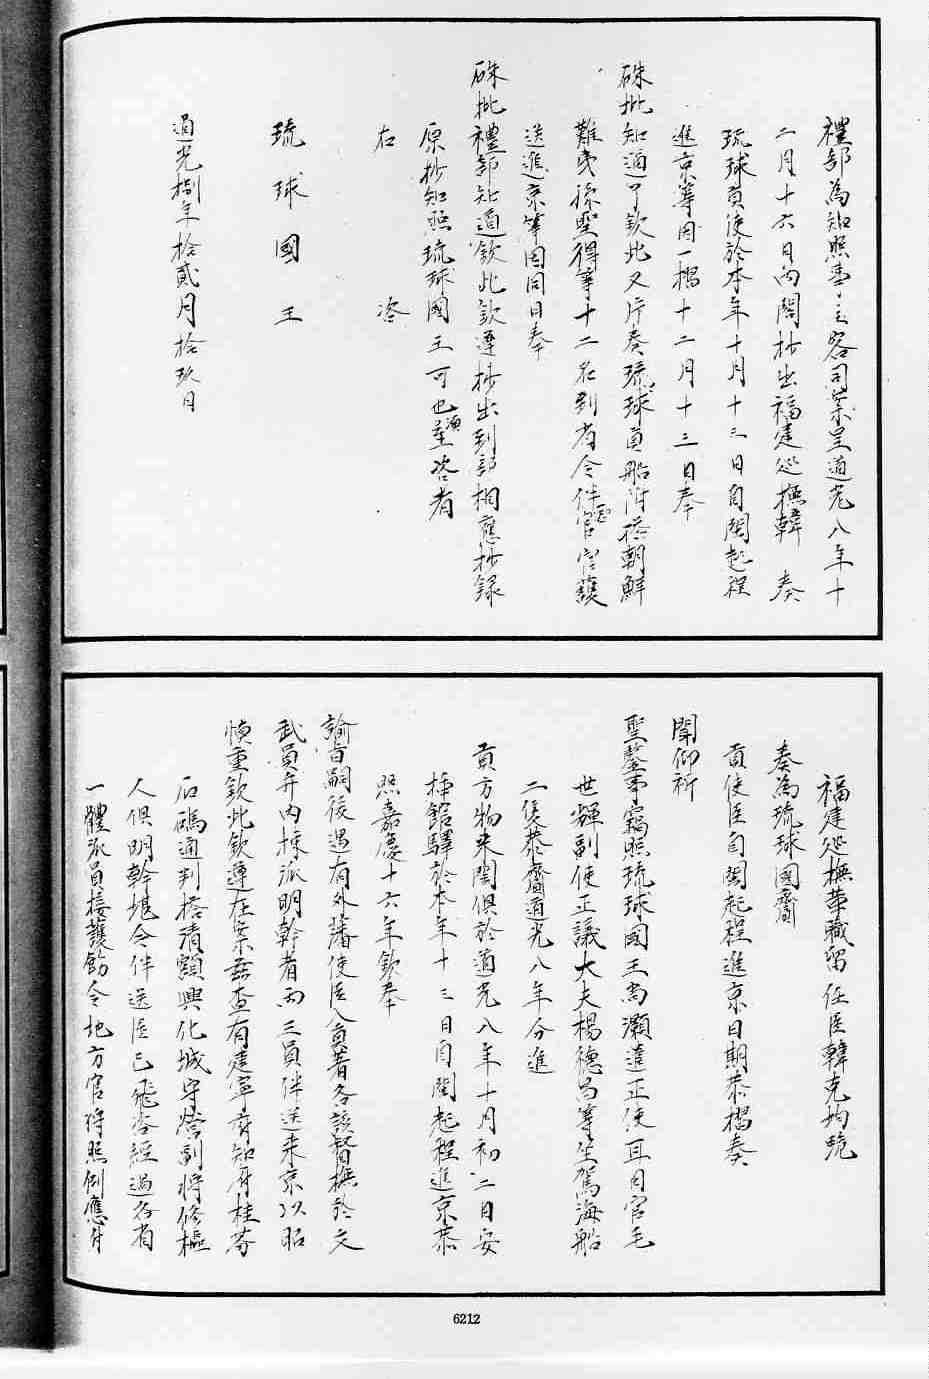 禮部為知照事主客司案呈道光八年十
二月十六日內閣抄出福建巡撫韓 奏
琉球貢使於本年十月十三日自閩起程
進京等因一摺十二月十三日奉
硃批知道了欽此又片奏琉球貢船附搭朝鮮
難夷孫聖得等十二名到省令伴官官護
送進京等因同日奉
硃批禮部知道欽此欽遵抄出到部相應抄錄
原抄知照琉球國王可也須至咨者
右 咨
琉球國王
道光捌年拾貳月拾玖日
福建巡撫革職留任臣韓克均跪
奏為琉球國齎
貢使臣自閩起程進京日期恭摺奏
聞仰祈
聖鑒事竊照琉球國王尚灝遣正使耳目官毛
世輝副使正議大夫楊德昌等坐駕海船
二隻恭齎道光八年分進
貢方物來閩俱於道光八年十月初二日安
插館驛於本年十三日自閩起程進京恭
照嘉慶十六年欽奉
諭旨嗣後遇有外藩使臣入貢著各該督撫於文
武員弁內揀派明幹者兩三員伴送來京以昭
慎重欽此欽遵在案茲查有建寧府知府桂芬
石碼通判搭清額興化城守營副將修樞
人俱明幹堪令伴送臣已飛咨經過各省
一體派員接護飭令地方官將照例應付
6212